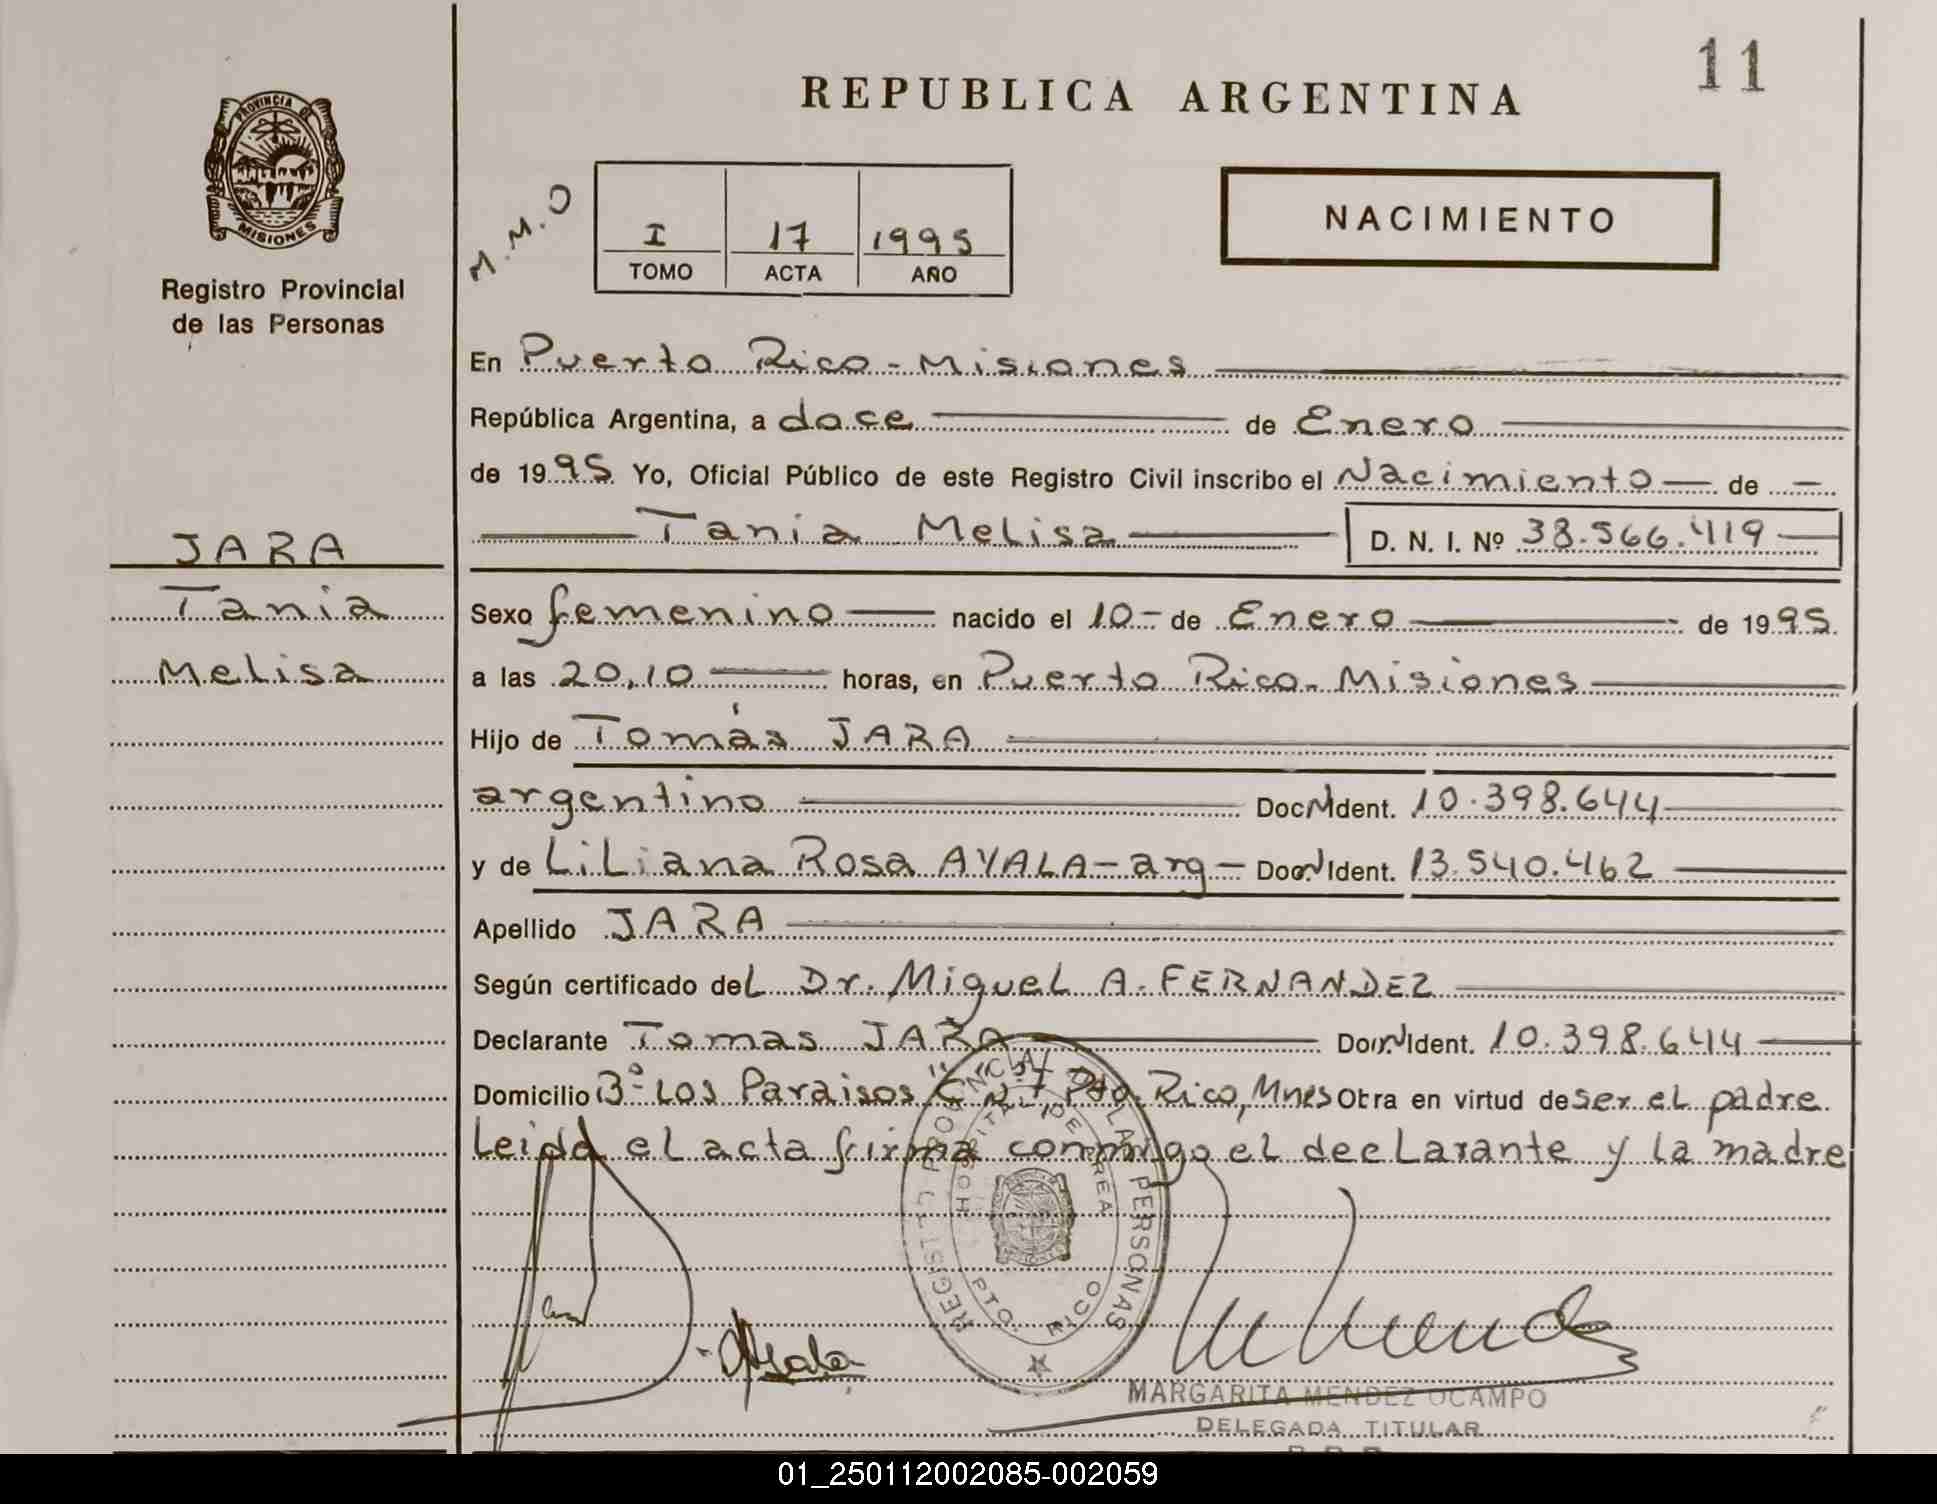 11
REPUBLICA ARGENTINA
PROVINCIA DE
MISIONES
Registro Provincial
de las Personas
M.M.O
I 17 1995
TOMO ACTA AÑO
NACIMIENTO
En Puerto Rico - Misiones
República Argentina, a doce de Enero
de 1995 Yo, Oficial Público de este Registro Civil inscribo el Nacimiento de
Tania Melisa D. N. I. Nº 38.566.419
JARA
Tania
Melisa
Sexo femenino nacido el 10 - de Enero de 1995
a las 20,10 horas, en Puerto Rico - Misiones
Hijo de Tomás JARA
argentino Doc. Ident. 10.398.644
y de Liliana Rosa AYALA - arg - Doc. Ident. 13.540.462
Apellido JARA
Según certificado del Dr. Miguel A. FERNANDEZ
Declarante Tomas JARA Doc. Ident. 10.398.644
Domicilio Bº Los Paraisos Pto. Rico, Mnes Obra en virtud de ser el padre
Leida el acta firma conmigo el declarante y la madre
REGISTRO PROVINCIAL DE LAS PERSONAS
HOSPITAL DE AREA
PTO. RICO
Ayala
M Mendez
MARGARITA MENDEZ OCAMPO
DELEGADA TITULAR
01_250112002085-002059